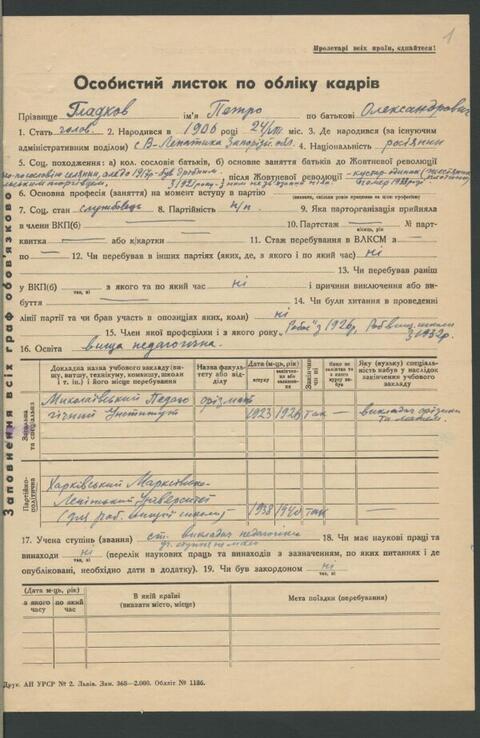 1
Пролетарі всіх країн, єднайтеся!
Особистий листок по обліку кадрів
Прізвище Гладков ім'я Петро по батькові Олександрович
1. Стать чолов. 2. Народився в 1906 році 24/VIII міс. 3. Де народився (за існуючим
адміністративним поділом) с. В-Лепатиха Запорізьк. обл. 4. Національність росіянин
5. Соц. походження: а) кол. сословіє батьків, б) основне заняття батьків до Жовтневої революції
після Жовтневої революції
6. Основна професія (заняття) на момент вступу в партію
(вказати, скільки років працював на цією професією)
7. Соц. стан службовець 8. Партійність б/п 9. Яка парторганізація прийняла
в члени ВКП(б) 10. Партстаж № парт-
місяць, рік
квитка або к/картки 11. Стаж перебування в ВЛКСМ з
по — 12. Чи перебував в інших партіях (яких, де, з якого і по який час) ні
13. Чи перебував раніш
у ВКП(б) з якого та по який час ні і причини виключення або ви-
так, ні
буття — 14. Чи були хитання в проведенні
лінії партії та чи брав участь в опозиціях яких, коли) ні
15. Член якої профспілки і з якого року „Робос" з 1926р, Роб вищ. школи
з 1932р.
16. Освіта вища педагогічна.
Заповнення всіх граф обов'язково
Докладна назва учбового закладу (ви-
шу, втишу, технікуму, комвишу, школи
і т. ін.) і його місце перебування
Назва факуль-
тету або від-
ділу
Дата (м-ць, рік)
вступу
закінчен-
ня або
залишення
Закінчив
чи ні
Якщо не
закінчив то
з якого
курсу ви-
був
Яку (вузьку) спеціаль-
ність набув у наслідок
закінчення учбового
закладу
Загальна
та спеціальна
Миколаївський Педаго- фізмат
гічний Інститут 1923 1926 так — викладач фізики
Партійно-
політична
Харківський Марксівсько-
Ленінський Університет
1938 1940 так —
17. Учена ступінь (звання) ст. викладач педагогіки 18. Чи має наукові праці та
винаходи ні (перелік наукових праць та винаходів з зазначенням, по яких питаннях і де
так, ні
опубліковані, необхідно дати в додатку). 19. Чи був закордоном ні
так, ні
Дата (м-ць, рік)
з якого
часу
по який
час
В якій країні
(вказати місто, місце)
Мета поїздки (перебування)
Друк. АН УРСР № 2. Львів. Зам. 368—2.000. Обліт № 1186.